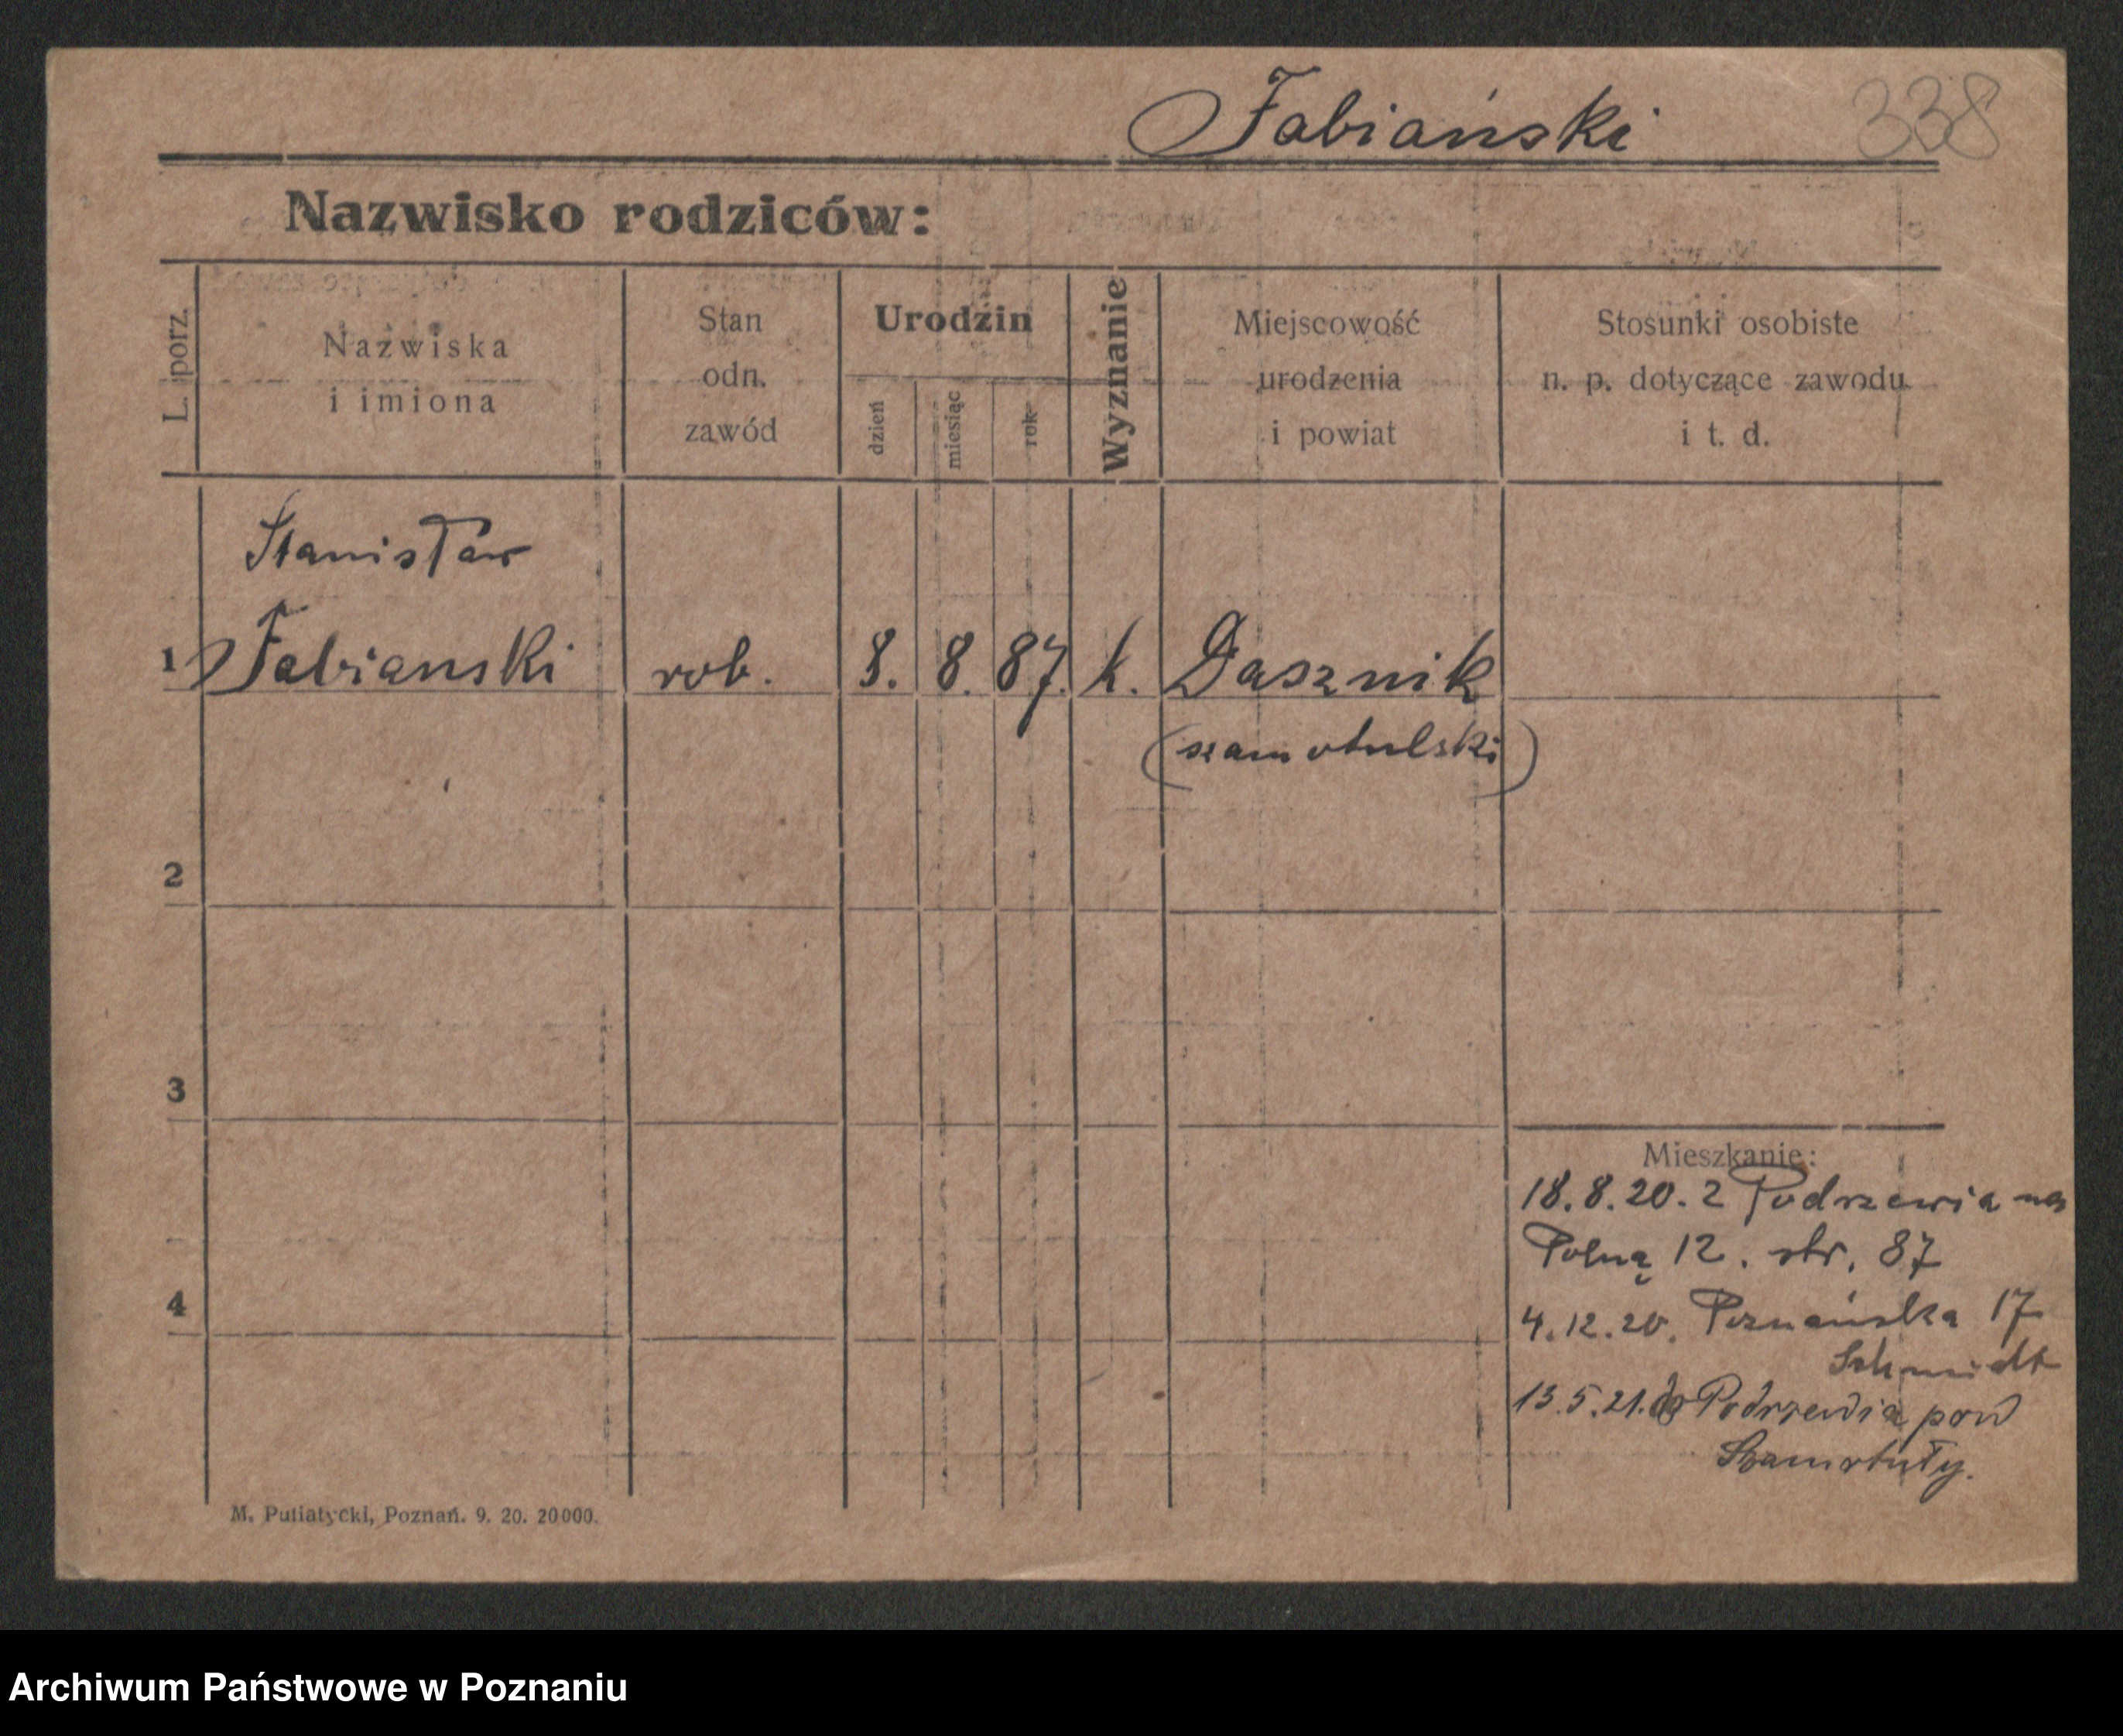 Fabiański 338
Nazwisko rodziców:
L. porz.
Nazwiska
i imiona
Stan
odn.
zawód
Urodzin
dzień
miesiąc
rok
Wyznanie
Miejscowość
urodzenia
i powiat
Stosunki osobiste
n. p. dotyczące zawodu
i t. d.
Stanisław
1 Fabianski rob. 8. 8. 87. k. Dasznik
(szamotulski)
2
3
4
Mieszkanie:
18.8.20. z Podrzewia na
Polną 12. str. 87
4.12.20. Poznańska 17
Schmidt
13.5.21. do Podrzewia pow
Szamotuły.
M. Putiatycki, Poznań. 9. 20. 20000.
Archiwum Państwowe w Poznaniu